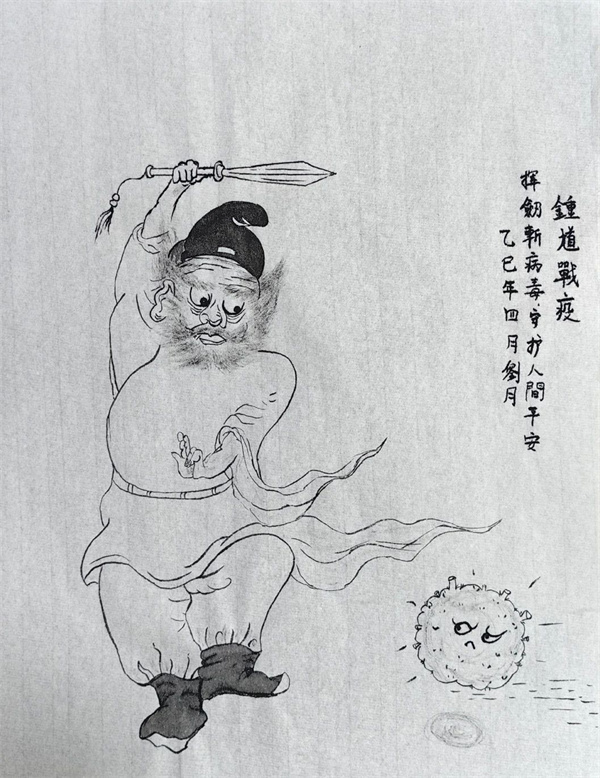 鍾馗戰疫
揮劒斬病毒守护人間平安
乙巳年四月劉月